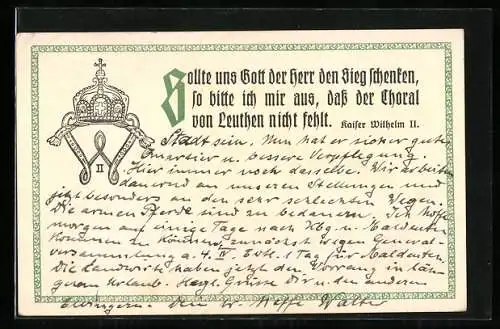 Sollte uns Gott der Herr den Sieg schenken,
so bitte ich mir aus, daß der Choral
von Leuthen nicht fehlt. Kaiser Wilhelm II.
W
II
Stadt sein. Nun hat er sicher gutes
Quartier u. bessere Verpflegung.
Hier immer noch dasselbe. Wir arbeiten
dauernd an unseren Stellungen und
jetzt besonders an den sehr schlechten Wegen.
Die armen Pferde sind zu bedauern. Ich hoffe
morgen auf einige Tage nach Kbg. u. Maldeuten
kommen zu können, zunächst wegen General-
versammlung a. 4. IV. Evtl. 1 Tag für Maldeuten.
Die Landwirte haben jetzt den Vorrang in
Urlaub. Herzl. Grüsse Dir u. den anderen
Dein Neffe Walter